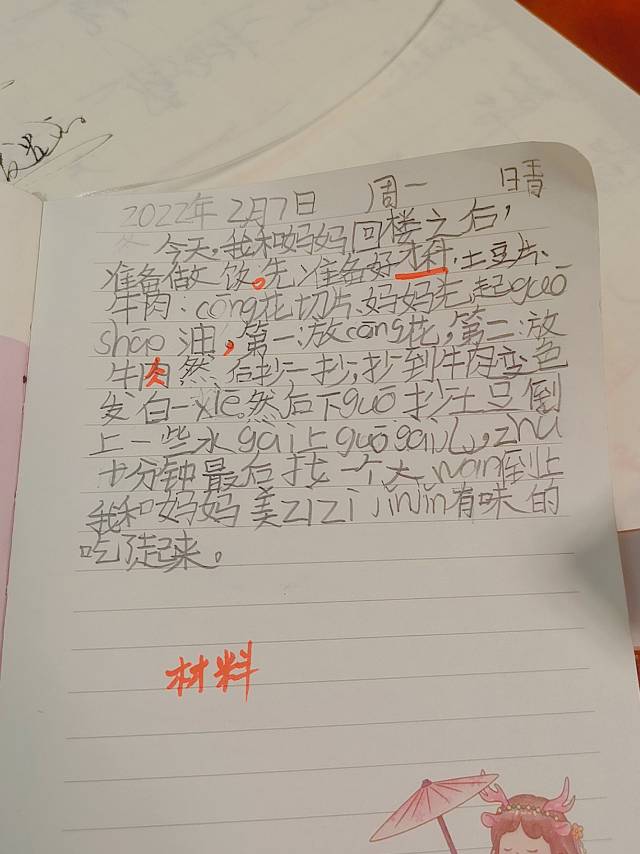 2022年2月7日 周一 晴
今天,我和妈妈回楼之后,
准备做饭。先准备好才料.土豆片、
牛肉.cōng花切片.妈妈先起guō
shāo油,第一:放cōng花,第二:放
牛肉然后抄一抄,抄到牛肉变色
发白一xiē.然后下guō抄土豆倒
上一些水gài上guōgàir,zhǔ
十分钟最后找一个大wǎn倒上
我和妈妈美zīzī jīnjīn有味的
吃了起来。
材料